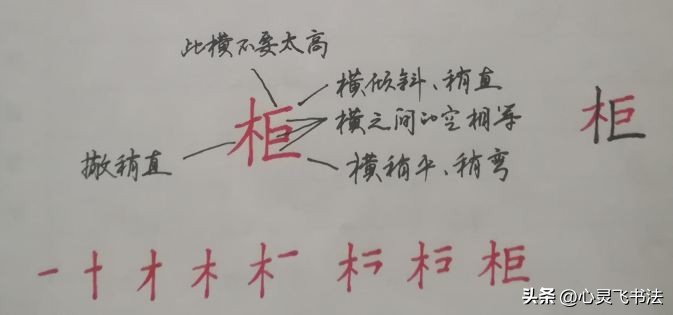 此横不要太高
横倾斜、稍直
横之间的空相等
柜
柜
撇稍直
横稍平、稍弯
一 十 才 木 柜
头条 @心灵飞书法